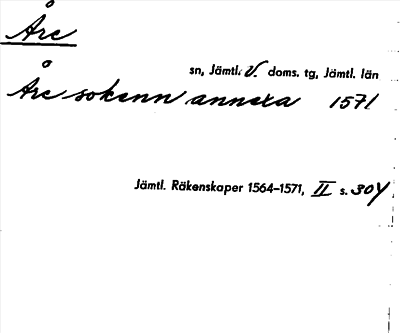 Åre
sn, Jämtl. V. doms. tg, Jämtl. län
Åre sokenn annexa 1571
Jämtl. Räkenskaper 1564-1571, II s. 304